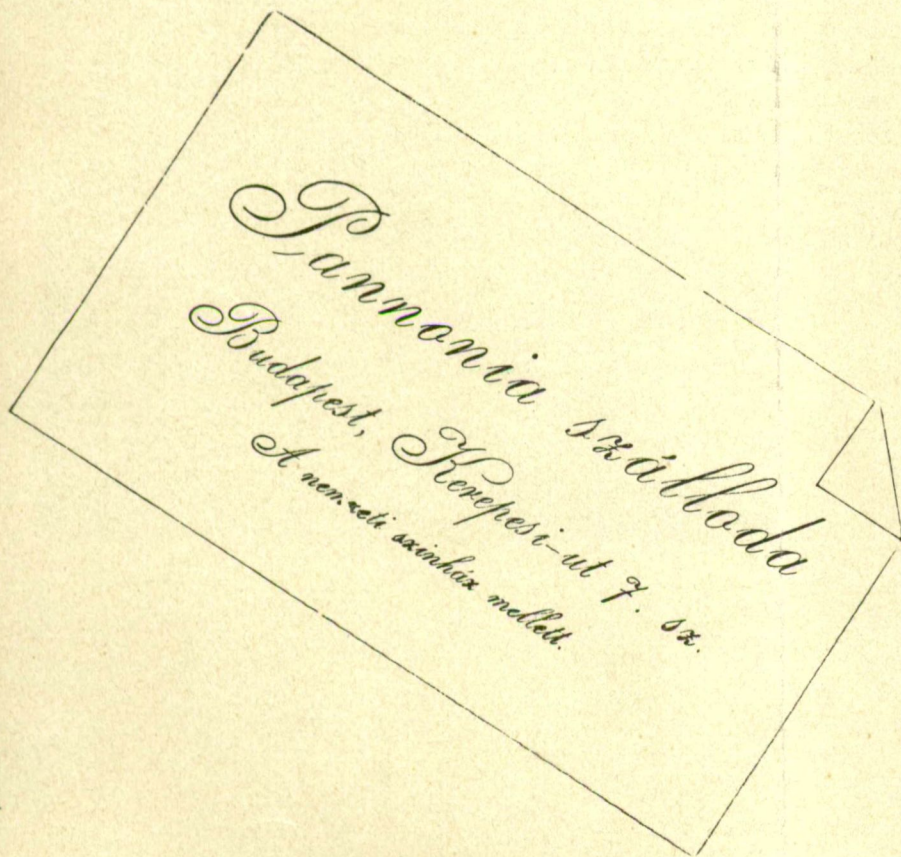 Pannonia szálloda
Budapest, Kerepesi-ut 7. sz.
A nemzeti szinház mellett.